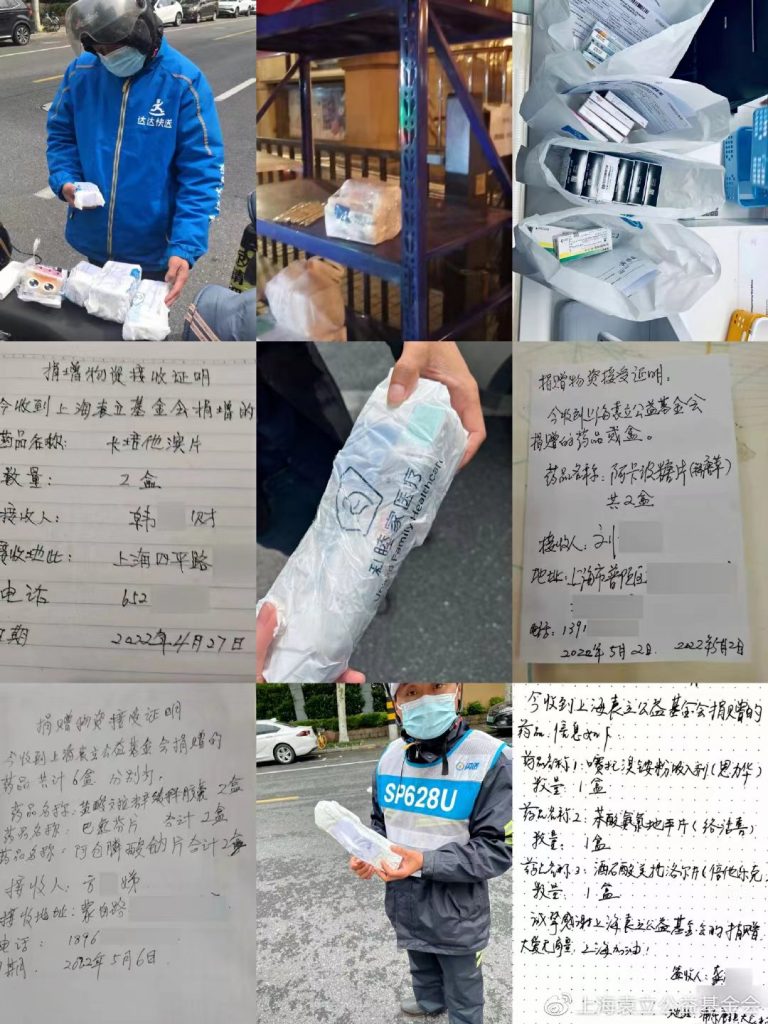 达达快送
捐增物资接收证明
今收到上海袁立基金会捐增的
药品名称: 卡培他滨片
数量: 2盒
接收人: 韩 财
接收地址: 上海四平路
电话 652
日期 2022年4月27日
和睦家医疗
United Family Healthcare
捐赠物资接受证明:
今收到上海袁立公益基金会
捐赠的药品贰盒。
药品名称: 阿卡波糖片
共2盒
接收人: 刘
地址: 上海市普陀区
电话: 1391
2022年5月2日 2022年5月2日
捐赠物资接受证明
今收到上海袁立公益基金会捐赠的
药品共计6盒 分别为
药品名称: 2盒
药品名称: 巴氯芬片 合计2盒
药品名称: 合计2盒
接收人: 方 娣
接收地址: 蒙自路
电话: 1896
日期. 2022年5月6日.
闪送
SP628U
今收到上海袁立公益基金会捐赠的
药品. 信息如下:
药品名称1: 噻托溴铵粉吸入剂(思力华)
数量: 1盒
药品名称2: 苯磺酸氨氯地平片(络活喜)
数量: 1盒
药品名称3: 酒石酸美托洛尔片(倍他乐克
数量: 1盒
诚挚感谢上海袁立公益基金会的捐赠.
大爱无疆, 上海加油!
签收人:
地址:
@上海袁立公益基金会